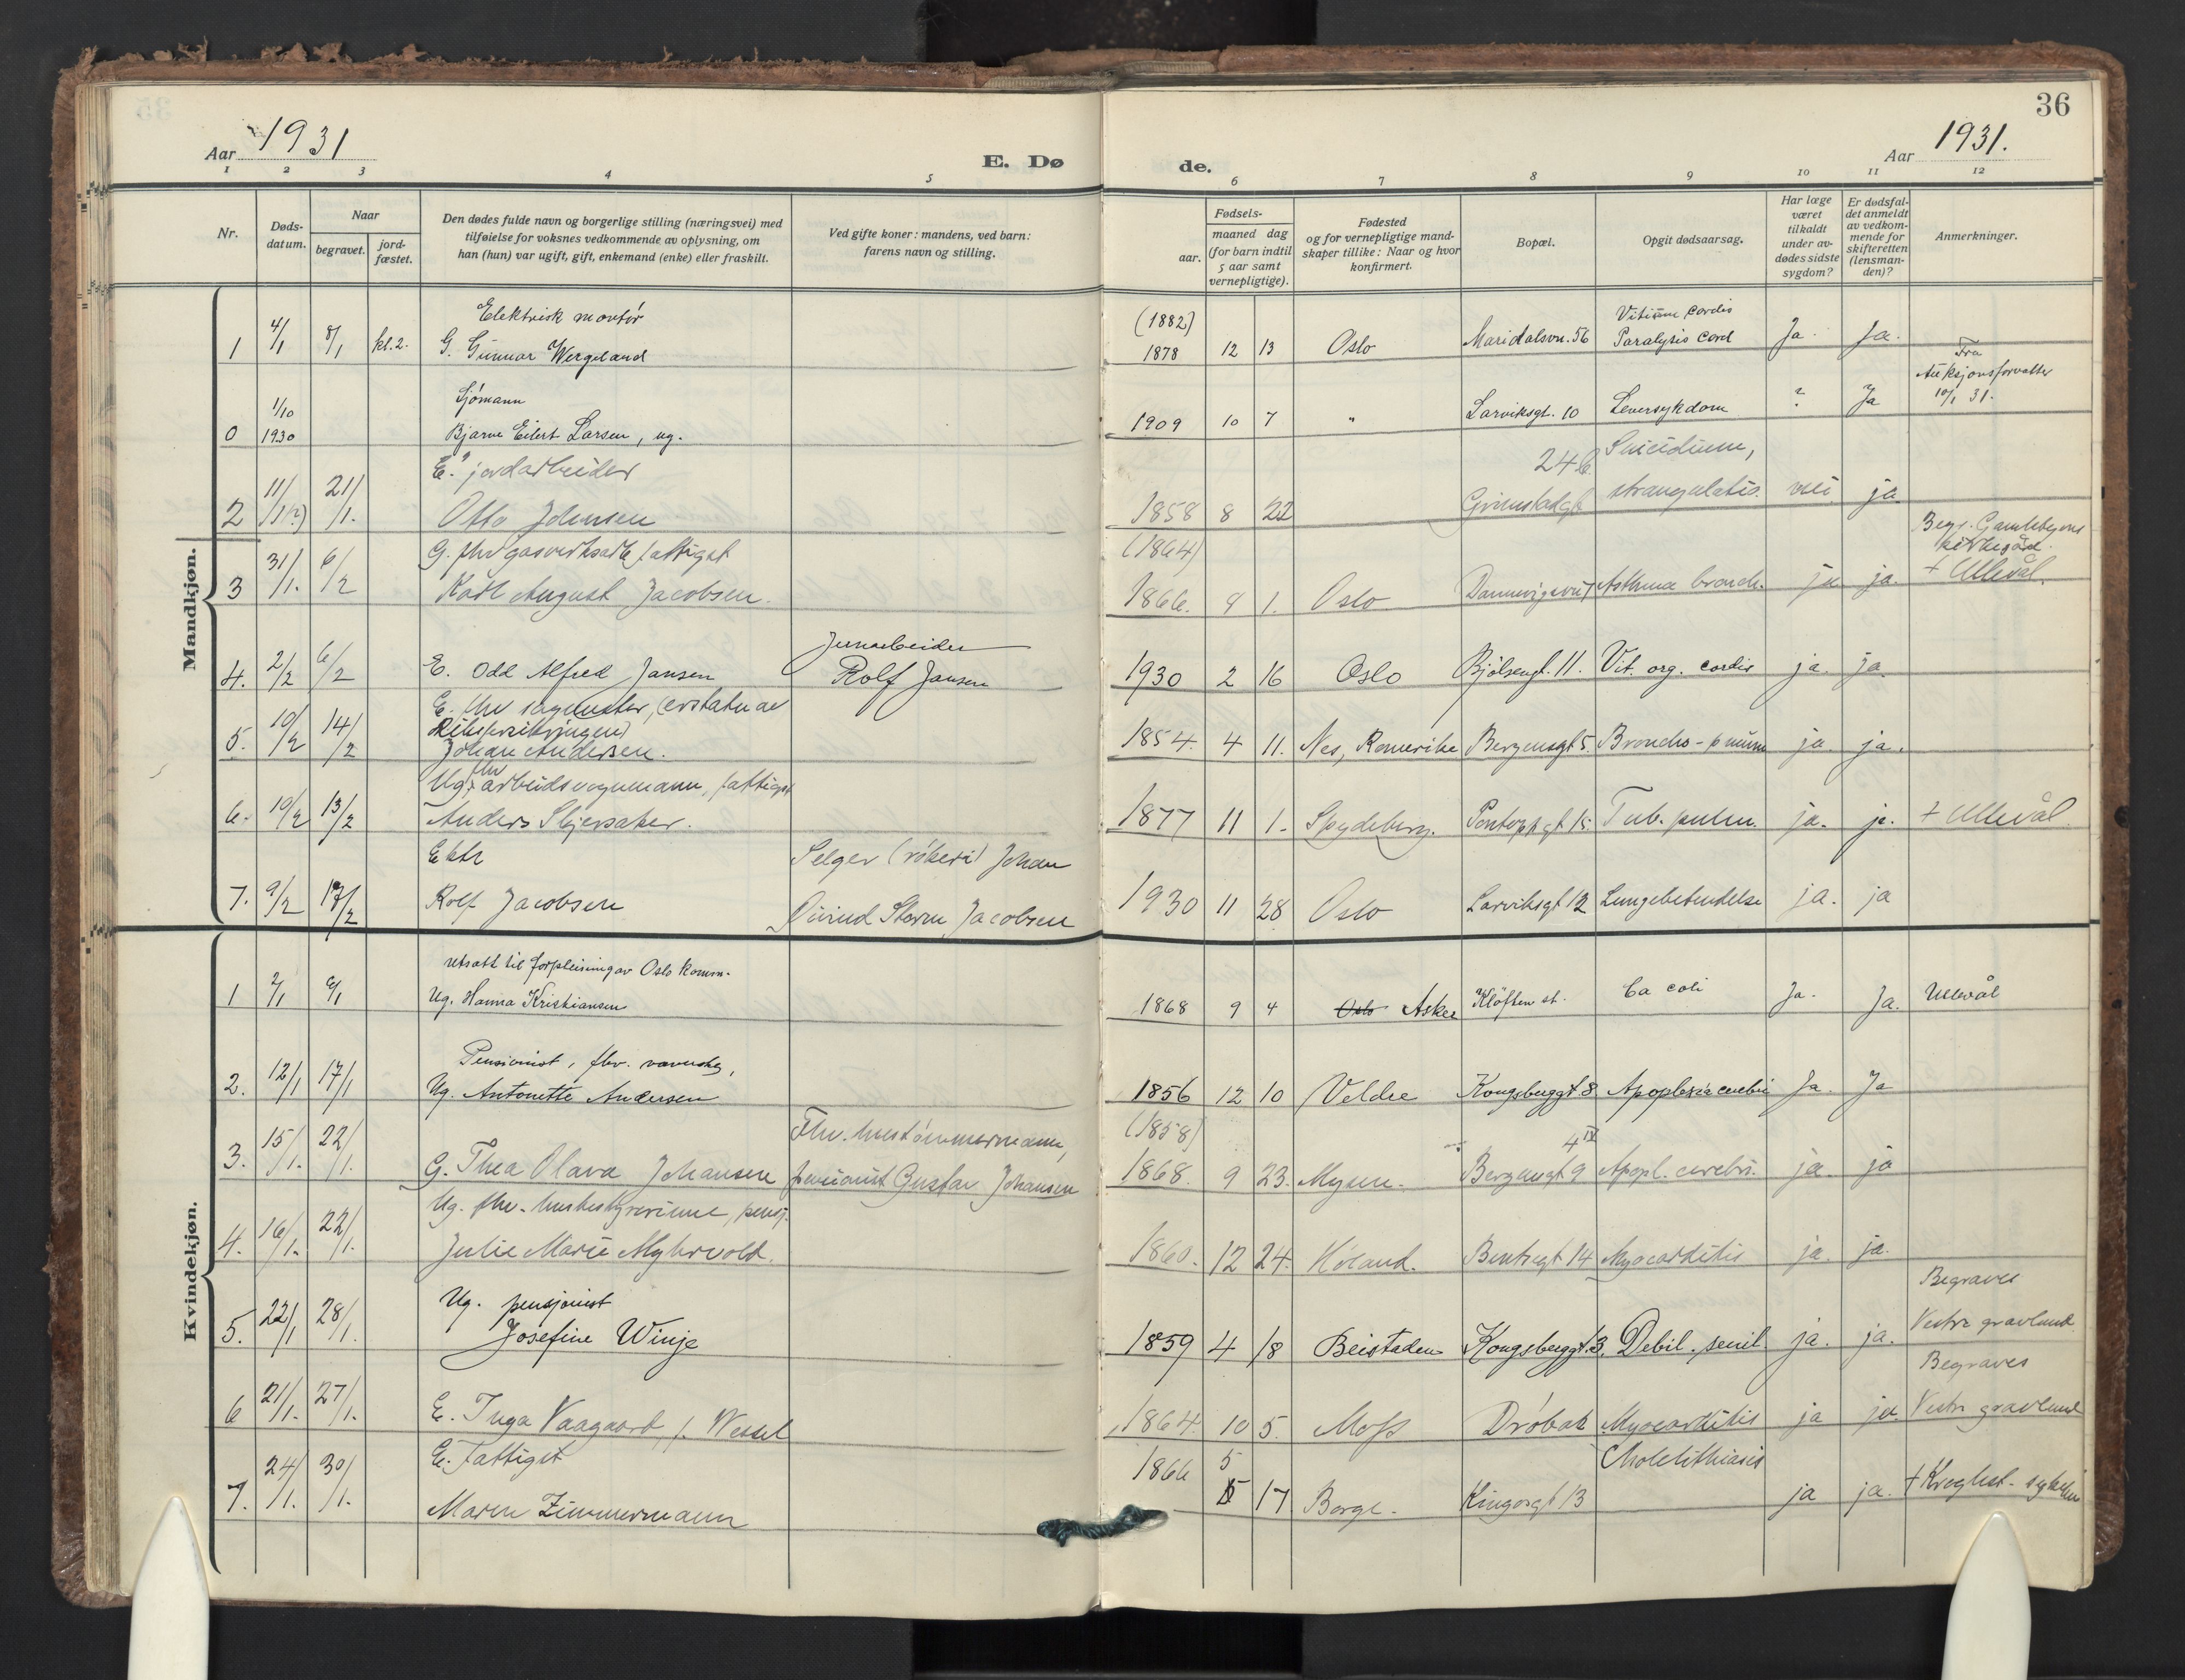 36
Aar 1931
E. Dø
de.
Aar 1931.
1 2 3 4 5 6 7 8 9 10 11 12
Nr.
Døds-
datum.
Naar
begravet.
jord-
fæstet.
Den dødes fulde navn og borgerlige stilling (næringsvei) med
tilføielse for voksnes vedkommende av oplysning, om
han (hun) var ugift, gift, enkemand (enke) eller fraskilt.
Ved gifte koner: mandens, ved barn:
farens navn og stilling.
Fødsels-
aar.
maaned dag
(for barn indtil
5 aar samt
vernepligtige).
Fødested
og for vernepligtige mand-
skaper tillike: Naar og hvor
konfirmert.
Bopæl.
Opgit dødsaarsag.
Har læge
været
tilkaldt
under av-
dødes sidste
sygdom?
Er dødsfal-
det anmeldt
av vedkom-
mende for
skifteretten
(lensman-
den)?
Anmerkninger.
Mandkjøn.
Elektrisk montör (1882) Vitium cordis
1 4/1 8/1 kl.2. G. Gunnar Wergeland 1878 12 13 Oslo Maridalsvn. 56 Paralysis cord Ja. Ja.
Fra
Auksjonsforvalter
10/1 31.
Sjømann
0 1/10 1930 Bjarne Eilert Larsen, ug. 1909 10 7 " Larviksgt. 10 Leversykdom ? Ja
E. jordarbeider 24 b Suicidium,
2 11/1 (?) 21/1. Otto Johnsen 1858 8 22 Grimstadgt strangulatio nei ja.
G. fhv gasverksarb. fattigst (1864) Begr. Gamlebyens
kirkegård.
3 31/1. 6/2 Karl August Jacobsen. 1866. 9 1. Oslo Dannevigsvn 7 Asthma bronch. ja ja. + Ullevål.
Jernarbeider
4. 2/2 6/2 E. Odd Alfred Jansen Rolf Jansen 1930 2 16 Oslo Bjölsengt. 11. Vit. org. cordis ja. ja.
E. fhv sagmester,
5. 10/2 14/2 Johan Andersen. 1854. 4 11. Nes, Romerike Bergensgt 5. Broncho-pneum ja. ja.
Ug. fhv arbeidsvognmann, fattigst
6. 10/2 13/2 Anders Skjersaker. 1877 11 1. Spydeberg. Pontoppgt 15 Tub. pulm. ja. ja. + Ullevål.
Ekte Selger (røkeri) Johan
7. 9/2 17/2 Rolf Jacobsen Øivind Storm Jacobsen 1930 11 28 Oslo Larviksgt 12 Lungebetendelse ja. ja
Kvindekjøn.
utsatt til forpleining av Oslo komm.
1 2/1 6/1 Ug. Hanna Kristiansen 1868 9 4 Oslo Asker Kløften st. Ca coli Ja. Ja. Ullevål
Pensionist, fhv. væverske,
2. 12/1 17/1 Ug. Antonette Andersen 1856 12 10 Veldre Kongsberggt 8 Apoplexia cerebri Ja. Ja
Fhv. hustømmermann, (1858) 4 IV
3. 15/1. 22/1. G. Thea Olava Johansen pensionist Gustav Johansen 1868. 9 23. Mysen. Bergensgt 9 Apopl. cerebri. ja. ja
Ug. fhv. husbestyrerinne, pensj.
4. 16/1. 22/1. Julie Marie Myhrvold. 1860. 12 24. Høland. Bentsegt 14 Myocarditis ja. ja.
Ug. pensjonist Begraves
5. 22/1 28/1. Josefine Winje 1859 4 18 Beistaden Kongsberggt. 13. Debil. senil ja. ja. Vestre gravlund
Begraves
6 21/1. 27/1. E. Inga Vaagaard, f. Wessel 1864. 10 5. Moss Drøbak Myocarditis ja ja Vestre gravlund
E. Fattigst 1866 5 Cholelithiasis
7. 24/1. 30/1. Maren Zimmermann 5 17 Borge. Kingosgt 13 ja ja. + Kroghst. sykehus